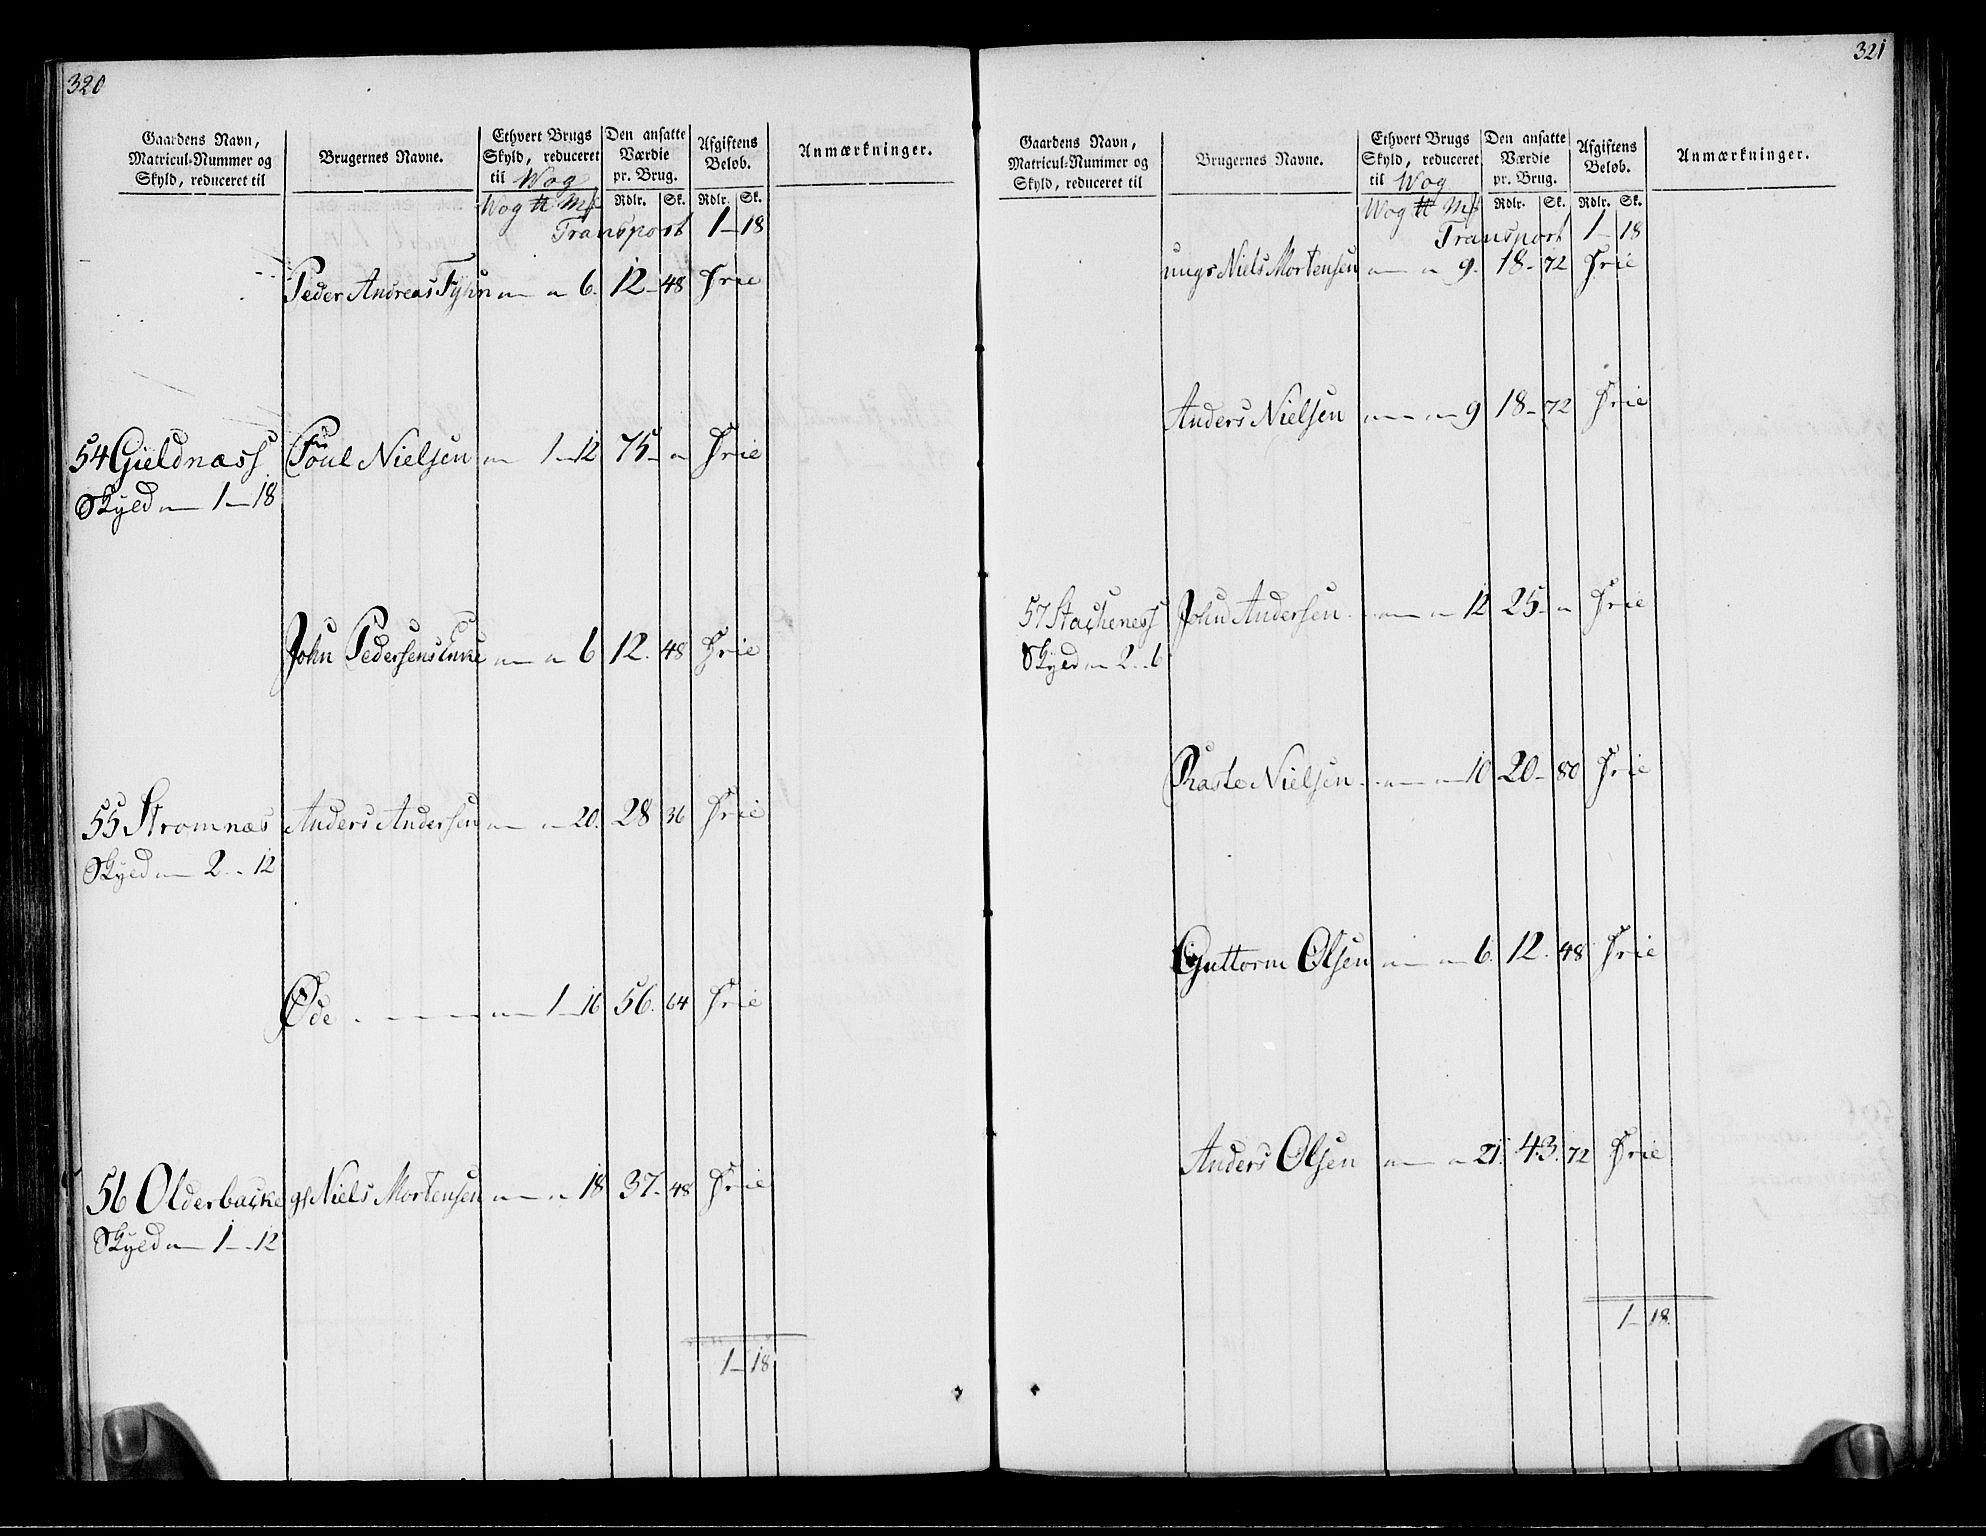 320
Gaardens Navn, Matricul-Nummer og Skyld, reduceret til
Brugernes Navne.
Ethvert Brugs Skyld, reduceret til Wog
Den ansatte Værdie pr. Brug.
Afgiftens Belob.
Anmærkninger.
Wog ℔ Mk Rdlr. Sk. Rdlr. Sk.
Transport 1 - 18
Peder Andreas Tyhn - - 6. 12 - 48 Frie
54 Gieldnæss Poul Nielsen - 1 - 12 75 - - Frie
Skyld - 1 - 18
John Pedersens Enke - - 6 12. 48 Frie
55 Stromnæs Anders Andersen - - 20. 28 36 Frie
Skyld - 2 - 12
Øde - - - - 1 - 16 56. 64 Frie
56 Olderbacke gl Niels Mortensen - - 18 37 - 48 Frie
Skyld - 1 - 12
1 - 18
321
Gaardens Navn, Matricul-Nummer og Skyld, reduceret til
Brugernes Navne.
Ethvert Brugs Skyld, reduceret til Wog
Den ansatte Værdie pr. Brug.
Afgiftens Belob.
Anmærkninger.
Wog ℔ Mk Rdlr. Sk. Rdlr. Sk.
Transport 1 - 18
ungs Niels Mortensen - - 9. 18 - 72 Frie
Anders Nielsen - - 9 18 - 72 Frie
57 Stackeness John Andersen - - 12 25 - - Frie
Skyld - 2 - 6
Raste Nielsen - - 10 20 - 80 Frie
Guttorm Olsen - - 6. 12. 48 Frie
Anders Olsen - - 21. 43. 72 Frie
1 - 18.